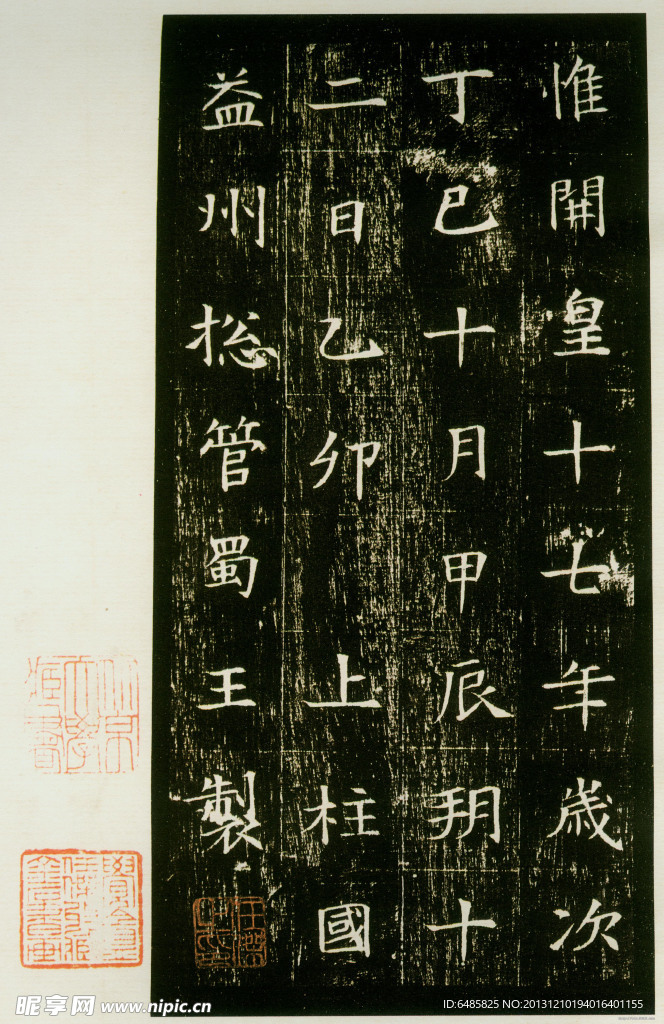 惟開皇十七年歲次
丁巳十月甲辰朔十
二日乙卯上柱國
益州捴管蜀王製
昵享网 www.nipic.cn
ID:6485825 NO:20131210194016401155